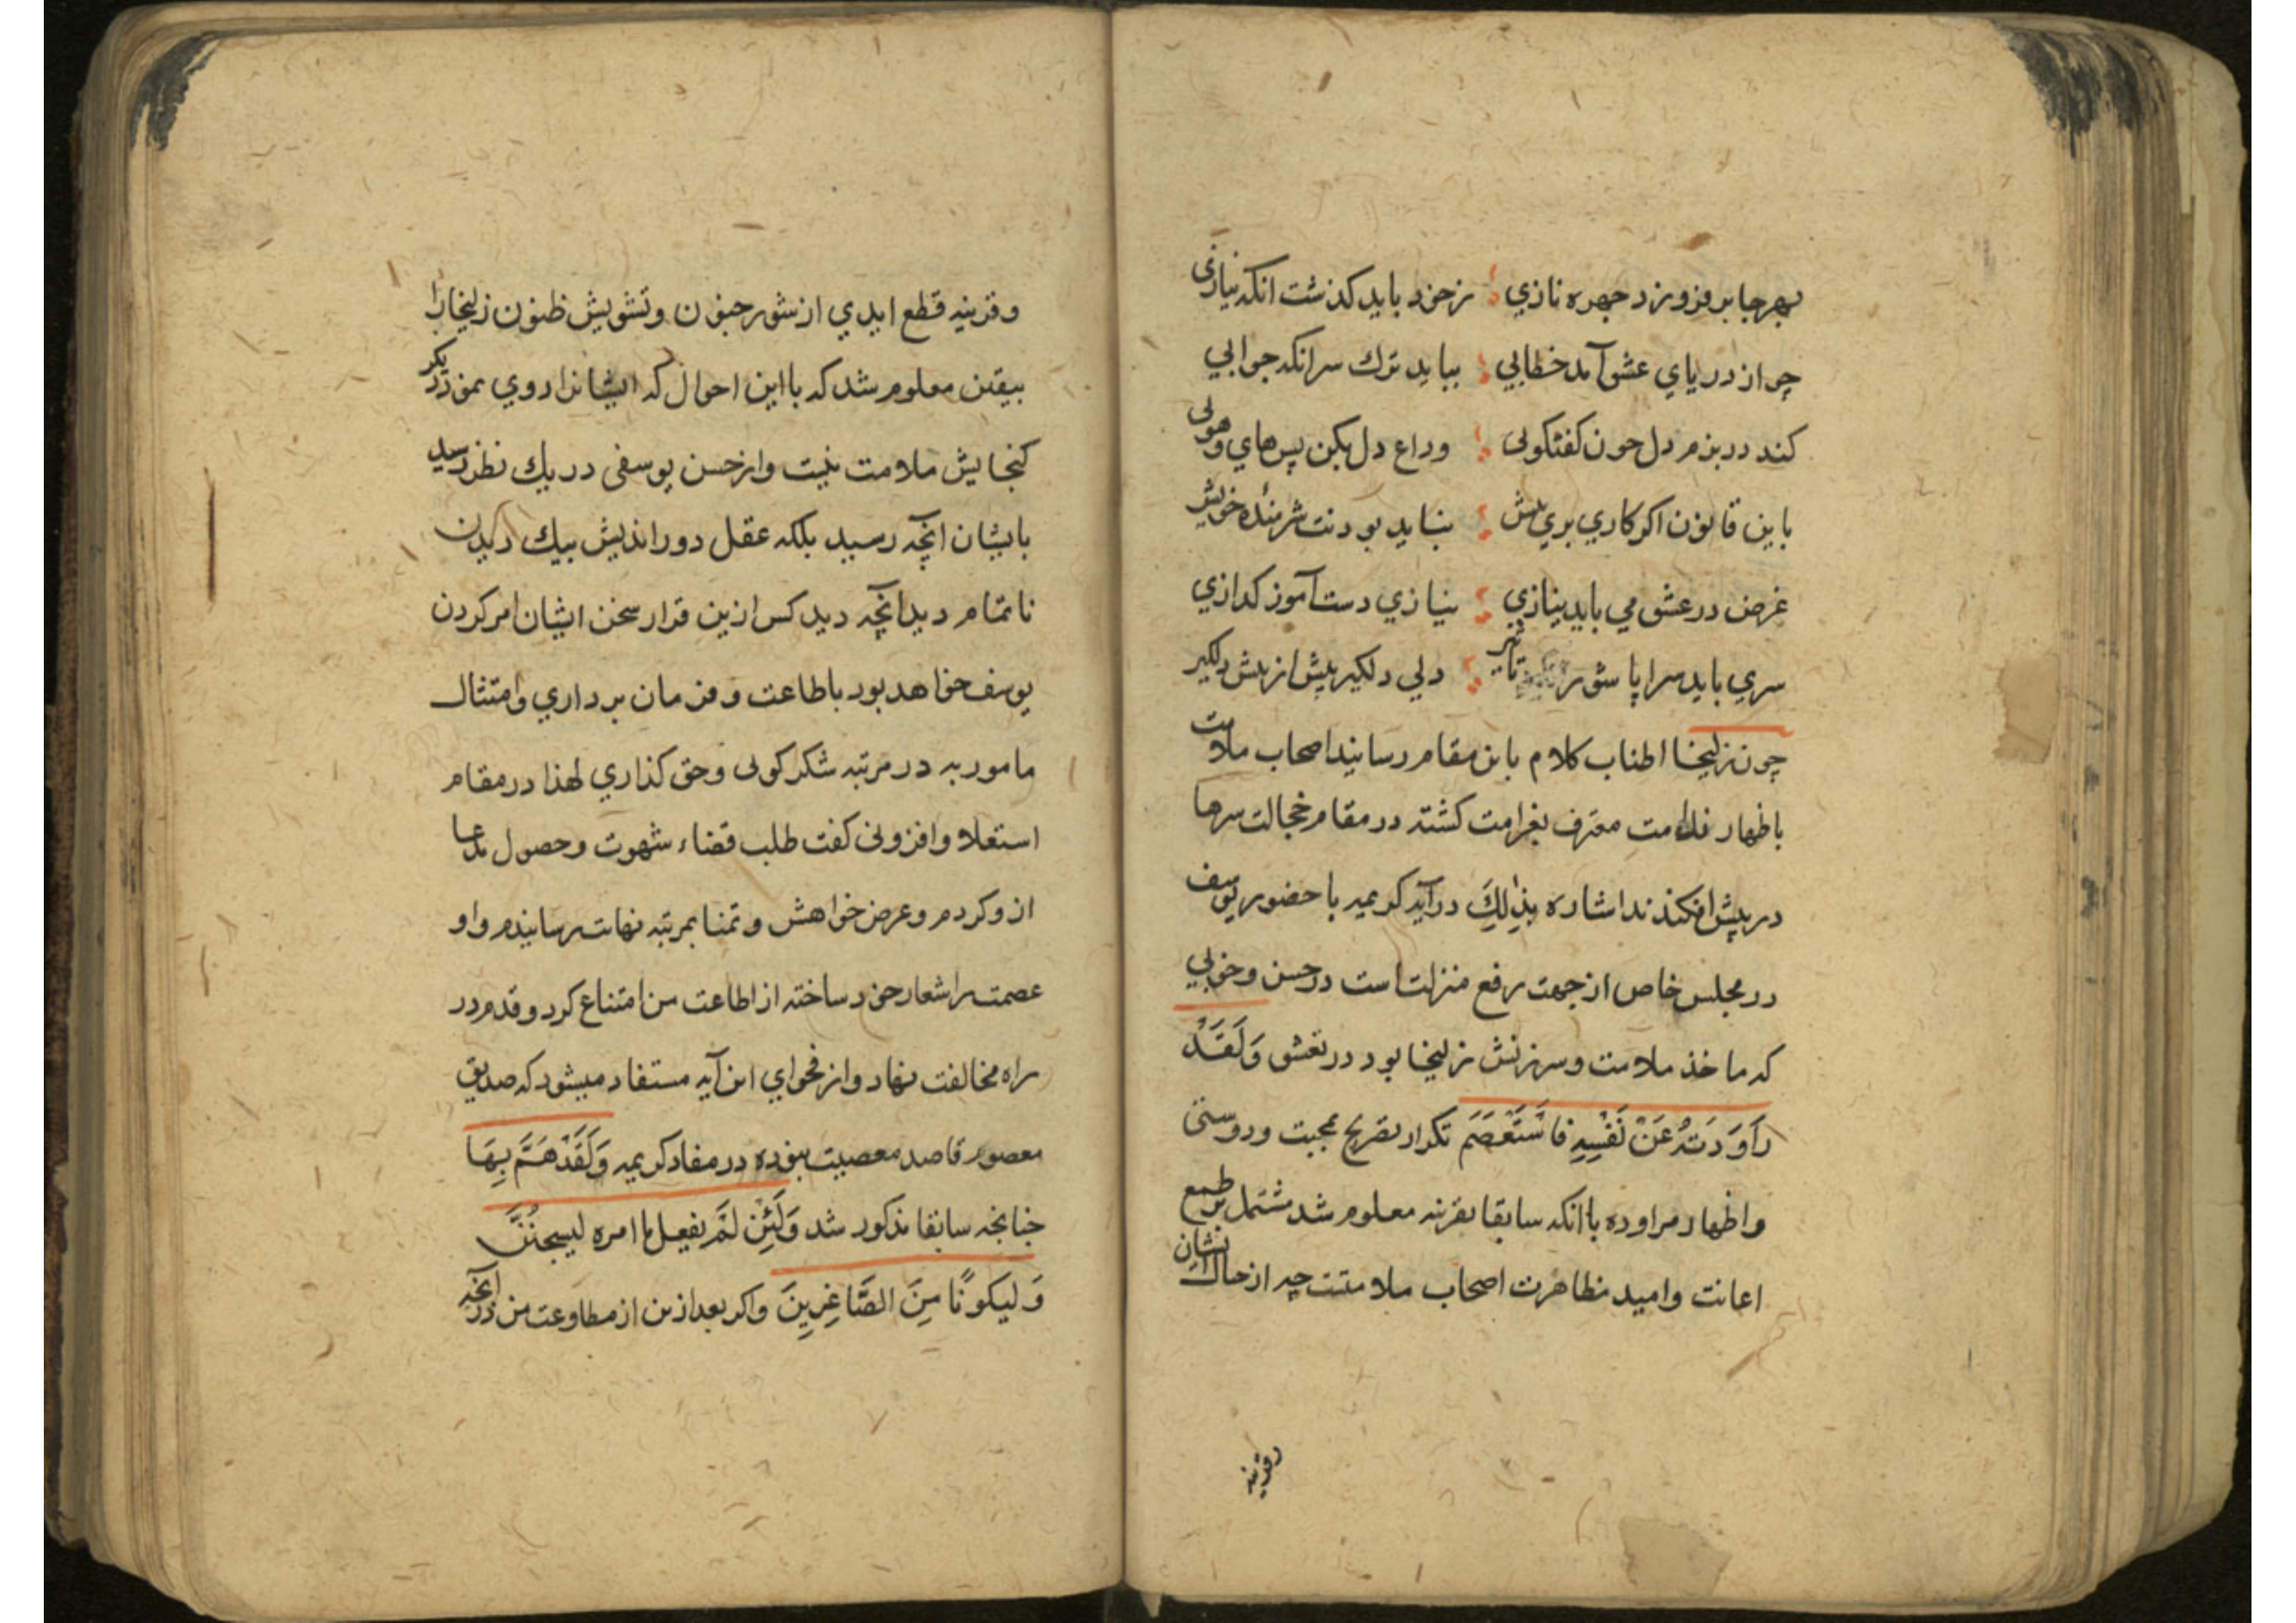 بهرجا برفروزد چهره نازي زخود بايد كذشت انكه نيازى
چو از درياي عشق آمد خطابي ببايد ترك سر انكه جوابي
كند در بزم دل چون كفتكوئى وداع دل بكن پس هاي وهوئى
باين قانون اكر كاري بري پيش نبايد بودنت شرمندۀ خويش
غرض در عشق مي بايد نيازي نيازي دست آموز كدازي
سري بايد سراپا شور تاثير دلي دلكير پيش از پيش دلكير
چون زليخا اطناب كلام باين مقام رسانيد اصحاب ملامت
باظهار ندامت معترف بغرامت كشته در مقام خجالت سرها
در پيش افكندند اشاره بذٰلِكَ در آيه كريمه با حضور يوسف
در مجلس خاص از جهت رفع منزلت است در حسن وخوبي
كه ماخذ ملامت وسرزنش زليخا بود در تعشق وَلَقَدْ
رَاوَدَتْهُ عَنْ نَفْسِهِ فَاسْتَعْصَمَ تكرار تصريح محبت ودوستى
واظهار مراوده باانكه سابقا بقرينه معلوم شد مشتمل بر طمع
اعانت واميد مظاهرت اصحاب ملامتت چه از حال ايشان
وقرينه
وقرينه قطع ايدي از شور جنون وتشويش ظنون زليخا را
بيقين معلوم شد كه بااين احوال كه ايشانرا روي نمود ديكر
كنجايش ملامت نيست واز حسن يوسفى در يك نظر رسيد
بايشان انچه رسيد بلكه عقل دورانديش بيك ديدن
ناتمام ديد انچه ديد كس ازين قرار سخن ايشان امر كردن
يوسف خواهد بود باطاعت وفرمان برداري وامتثال
مامور به در مرتبه شكركوئى وحق كذاري لهذا در مقام
استعلا وافزونى كفت طلب قضاء شهوت وحصول مدعا
ازو كردم وعرض خواهش وتمنا بمرتبه نهايت رسانيدم واو
عصمت را شعار خود ساخته از اطاعت من امتناع كرد وقدم در
راه مخالفت نهاد واز فحواي اين آيه مستفاد ميشود كه صديق
معصوم قاصد معصيت نبوده در مفاد كريمه وَلَقَدْ هَمَّ بِهَا
چنانچه سابقا مذكور شد وَلَئِنْ لَمْ يفعل ما امره ليسجنُنَّ
وَليكونًا مِنَ الصَّاغِرِينَ واكر بعد ازين از مطاوعت من در انچه